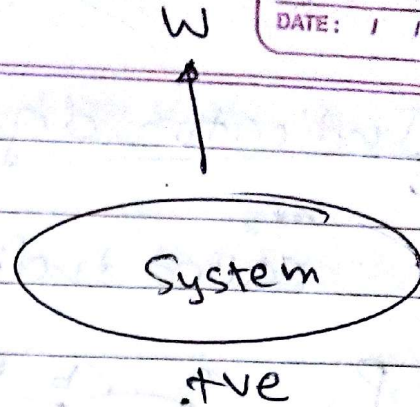 W
DATE: / /
System
+ve